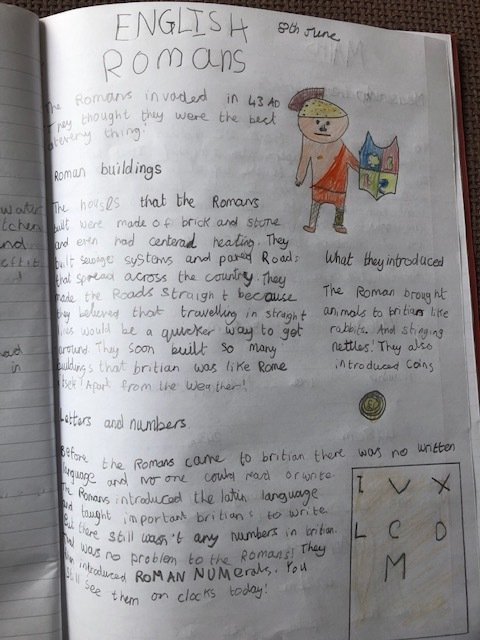 ENGLISH
8th June
Romans
The Romans invaded in 43 AD
They thought they were the best
at every thing!
Roman buildings
The houses that the Romans
built were made of brick and stone
and even had centeral heating. They
built sewage systems and paved Roads
that spread across the country. They
made the Roads straight because
they believed that travelling in straight
lines would be a quicker way to get
around. They soon built so many
buildings that britian was like Rome
itself! Apart from the weather!
What they introduced
The Roman brought
animals to britian like
rabbits. And stinging
nettles! They also
introduced Coins
Letters and numbers
Before the Romans came to britian there was no written
language and no one could read or write
The Romans introduced the latin language
and taught important britians to write.
But there still wasn't any numbers in britian.
That was no problem to the Romans! They
introduced ROMAN NUMerals. You
still see them on clocks today!
I V X
L C D
M